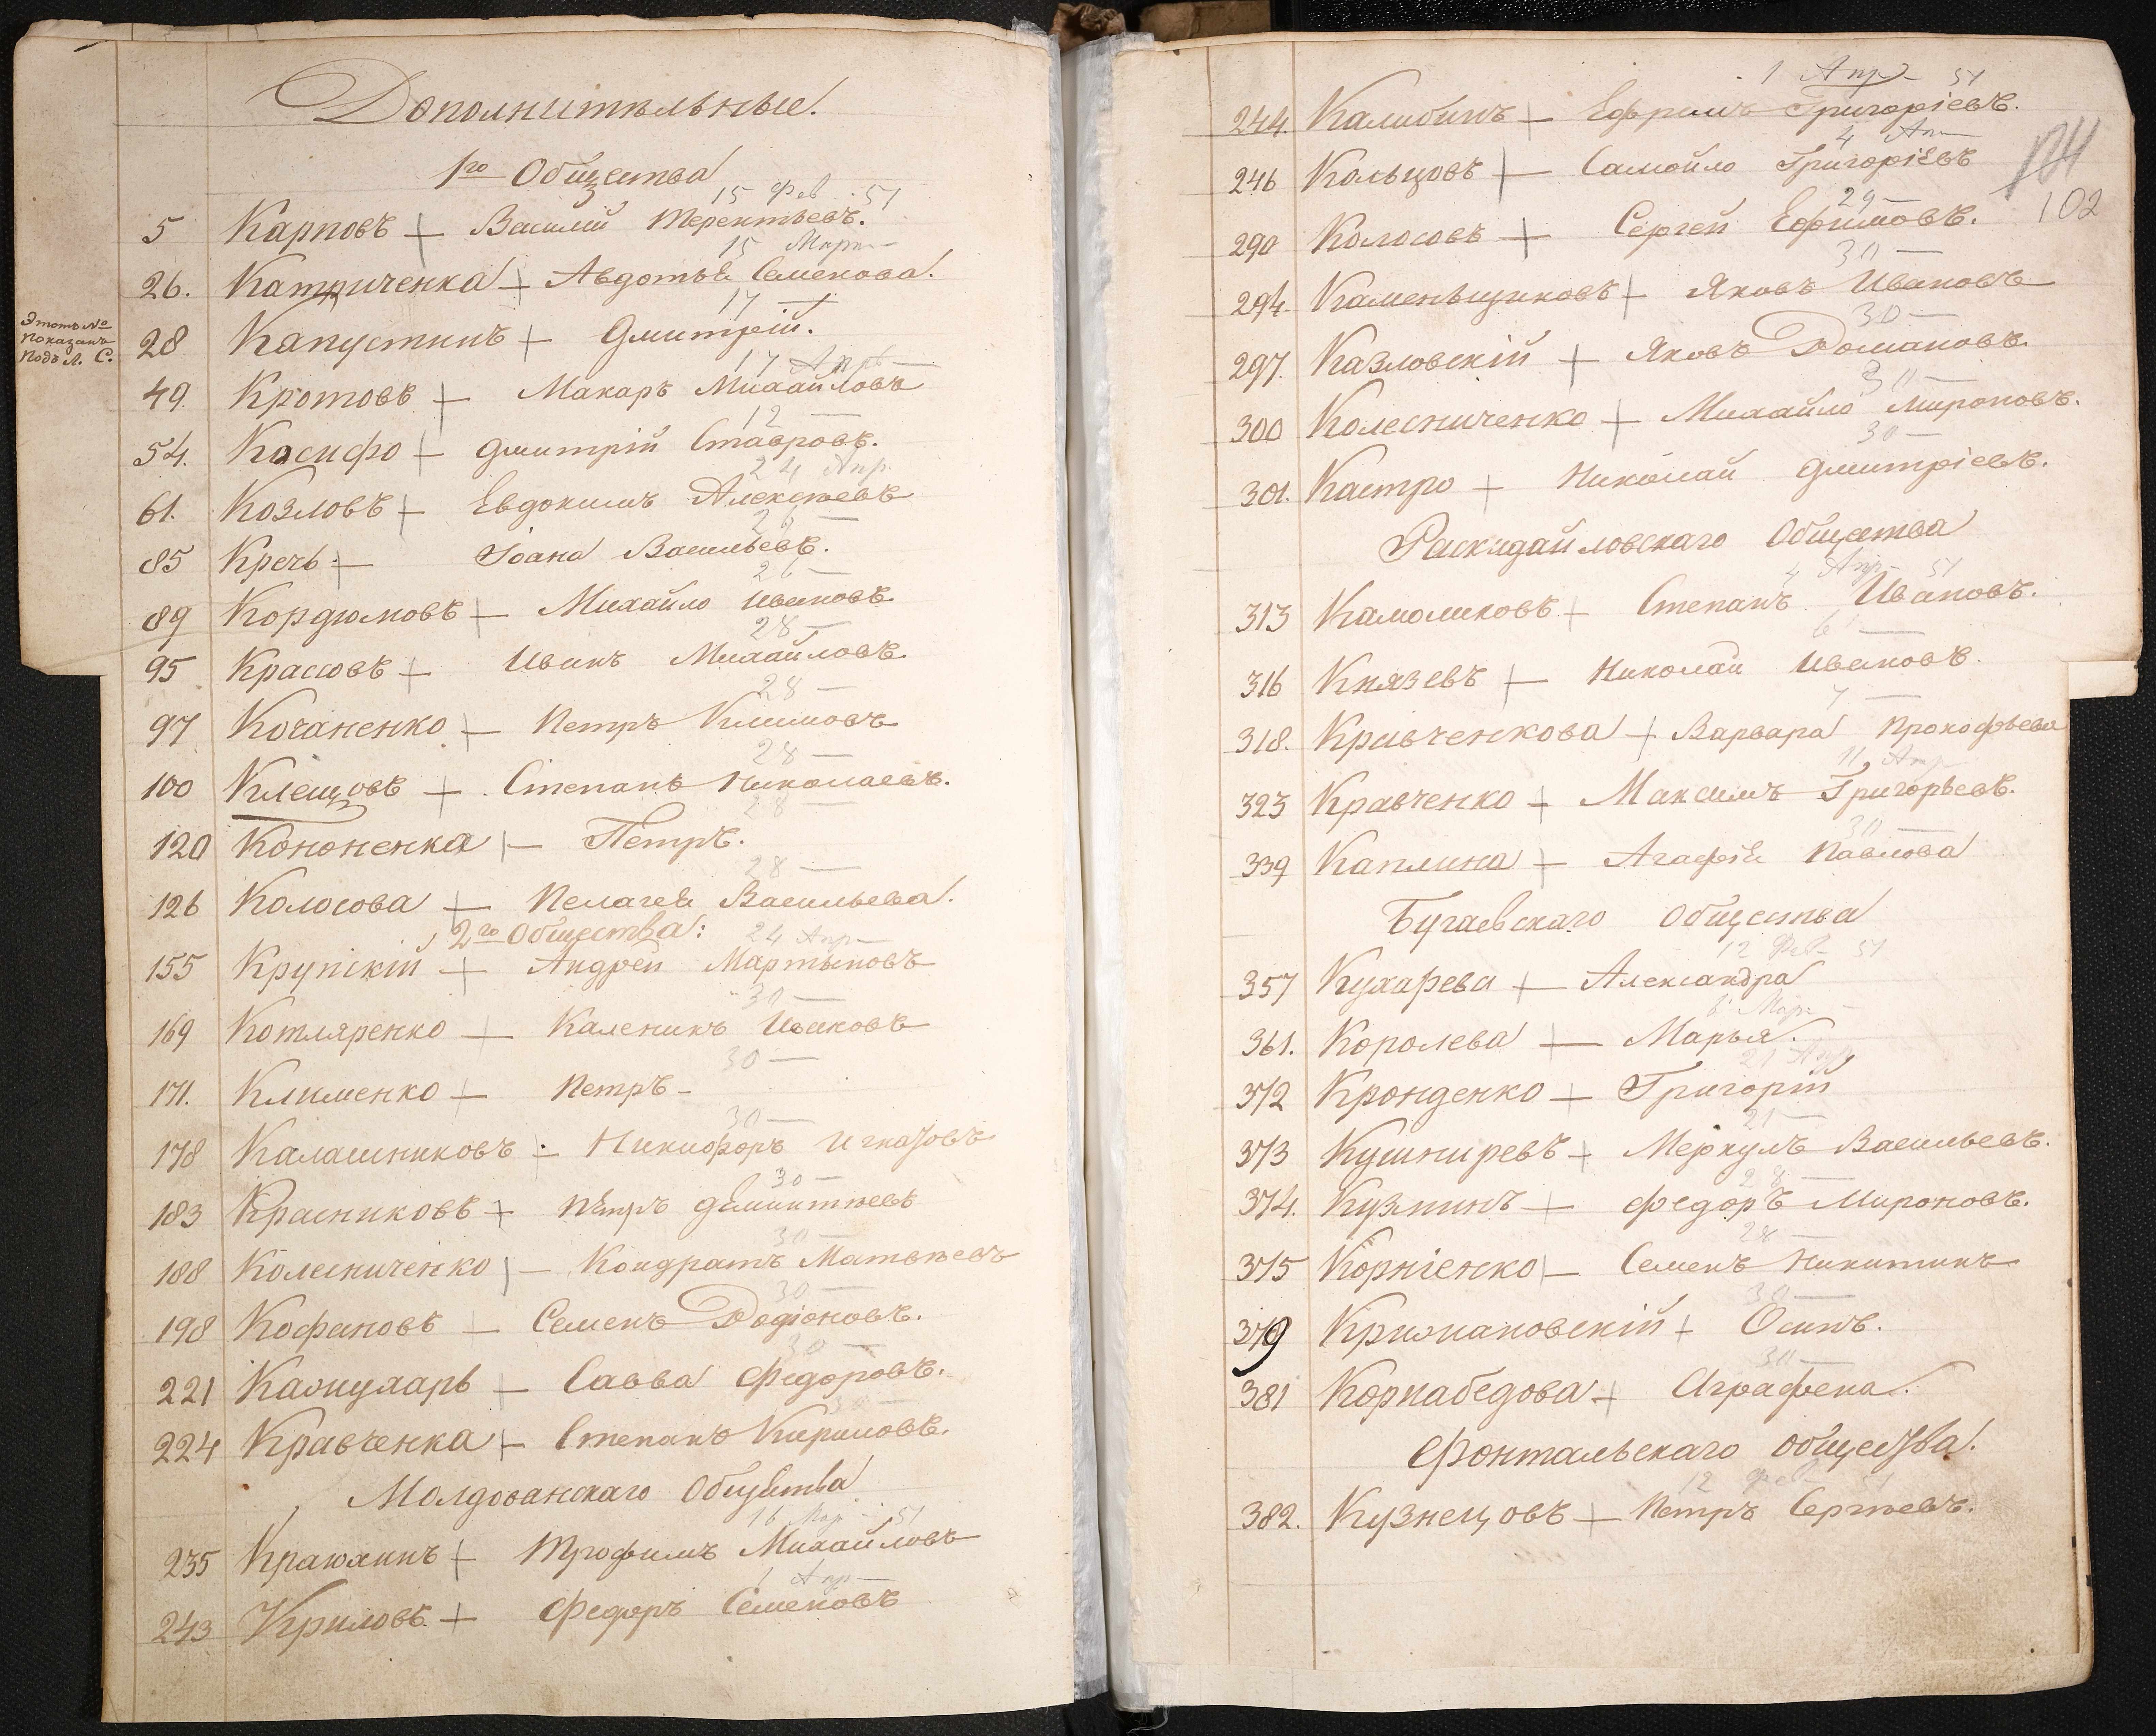 Дополнительные.
1го Общества
15 Фев 51
5 Карповъ — Василій Терентьевъ.
15 Мар
26. Катриченка — Авдотья Семенова.
17
Этотъ №
показанъ
подъ Л. С.
28 Капустинъ — Дмитрій.
17 Апр
49 Кротовъ — Макаръ Михайловъ
12
54. Касифо — Дмитрій Ставровъ.
24 Апр
61. Козловъ — Евдокимъ Алексѣевъ
85 Кречь — Іоанъ Васильевъ.
26
89 Кордюмовъ — Михайло Ивановъ
28
95 Крассовъ — Иванъ Михайловъ
28
97 Кочаненко — Петръ Климовъ
28
100 Клещовъ — Степанъ Николаевъ.
28
120 Кононенка — Петръ.
28
126 Колосова — Пелагея Васильева.
2го Общества:
24 Апр
155 Крупскій — Андрей Мартыновъ
30
169 Котляренко — Каленикъ Ивановъ
30
171. Клименко — Петръ
30
178 Калашниковъ — Никифоръ Игнатовъ
30
183 Красниковъ — Петръ Дементьевъ
30
188 Колесниченко — Кондратъ Матвѣевъ
30
198 Кофановъ — Семенъ Родіоновъ.
30
221 — Савва Федоровъ.
224 Кравченка — Степанъ Кириловъ.
Молдованскаго Общества
16 Мар 51
235 Краюхинъ — Трофимъ Михайловъ
1 Апр
243 Криловъ — Федоръ Семеновъ
1 Апр 51
244. Калибинъ — Ефремъ Григоріевъ.
4 Ап
246 Кольцовъ — Самойло Григоріевъ
102
29
290 Колосовъ — Сергей Ефимовъ.
30
294. Каменьщиковъ — Яковъ Ивановъ
30
297. Казловскій — Яковъ Романовъ
30
300 Колесниченко — Михайло Мироновъ.
30
301. Кастро — Николай Дмитріевъ.
Раскидайловскаго Общества
4 Апр 51
313 Камоликовъ — Степанъ Ивановъ.
6
316 Князевъ — Николай Ивановъ.
7
318. Кравченкова — Варвара Прокофьева
11 Апр
323 Кравченко — Максимъ Григорьевъ.
30
339 Каплина — Агафія Павлова
Бугаевскаго Общества
12 Фев 51
357 Кухарева — Александра
Мар
361. Королева — Марья.
21 Апр
372 Кронденко — Григорій
21
373 Кушниревъ — Меркулъ Васильевъ.
28
374. Кузминъ — Федоръ Мироновъ.
28
375 Корніенко — Семенъ Никитинъ
30
379 Кришановскій — Осипъ.
30
381 Корнабедова — Аграфена.
Фонтальскаго общества.
12 Фев 51
382. Кузнецовъ — Петръ Сергѣевъ.